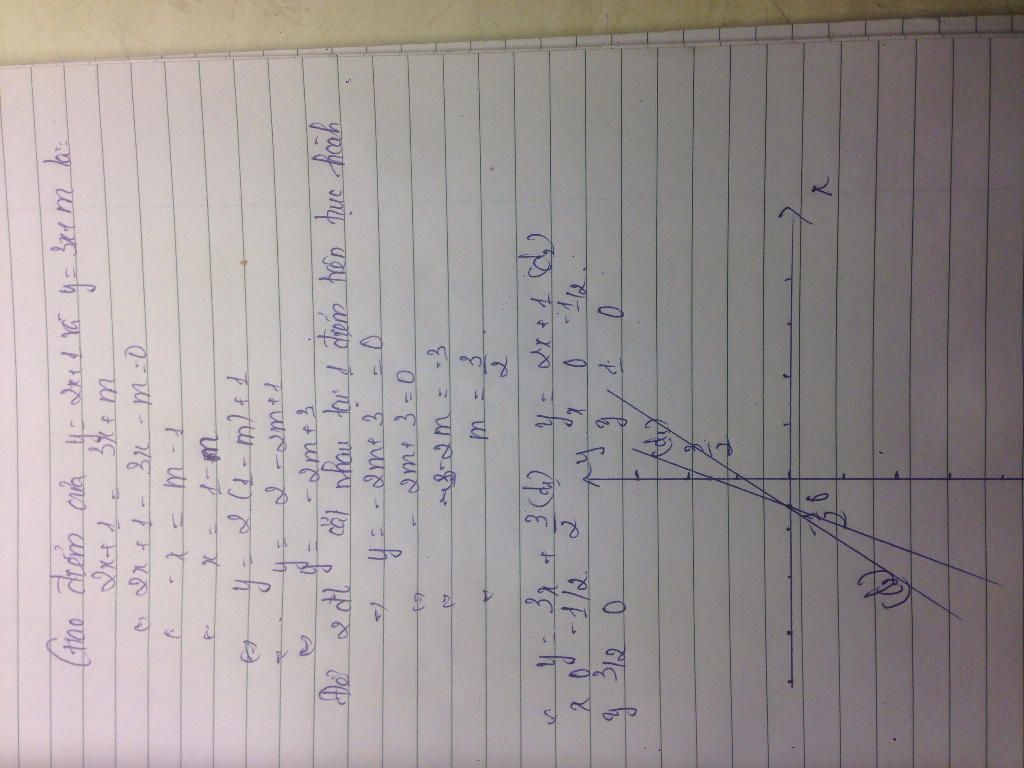 Giao điểm của y = 2x + 1 và y = 3x + m là:
2x + 1 = 3x + m
⇔ 2x + 1 - 3x - m = 0
- x = m - 1
x = 1 - m
⇔ y = 2 (1 - m) + 1
y = 2 - 2m + 1
⇔ y = - 2m + 3
Để 2 đt cắt nhau tại 1 điểm trên trục hoành
⇒ y = - 2m + 3 = 0
⇔ - 2m + 3 = 0
- 2m = - 3
m = 3/2
y = 3x + 3/2 (d1) y = 2x + 1 (d2)
x 0 -1/2 x 0 -1/2
y 3/2 0 y 1 0
y
(d1)
3
2
-1
2
(d2)
x